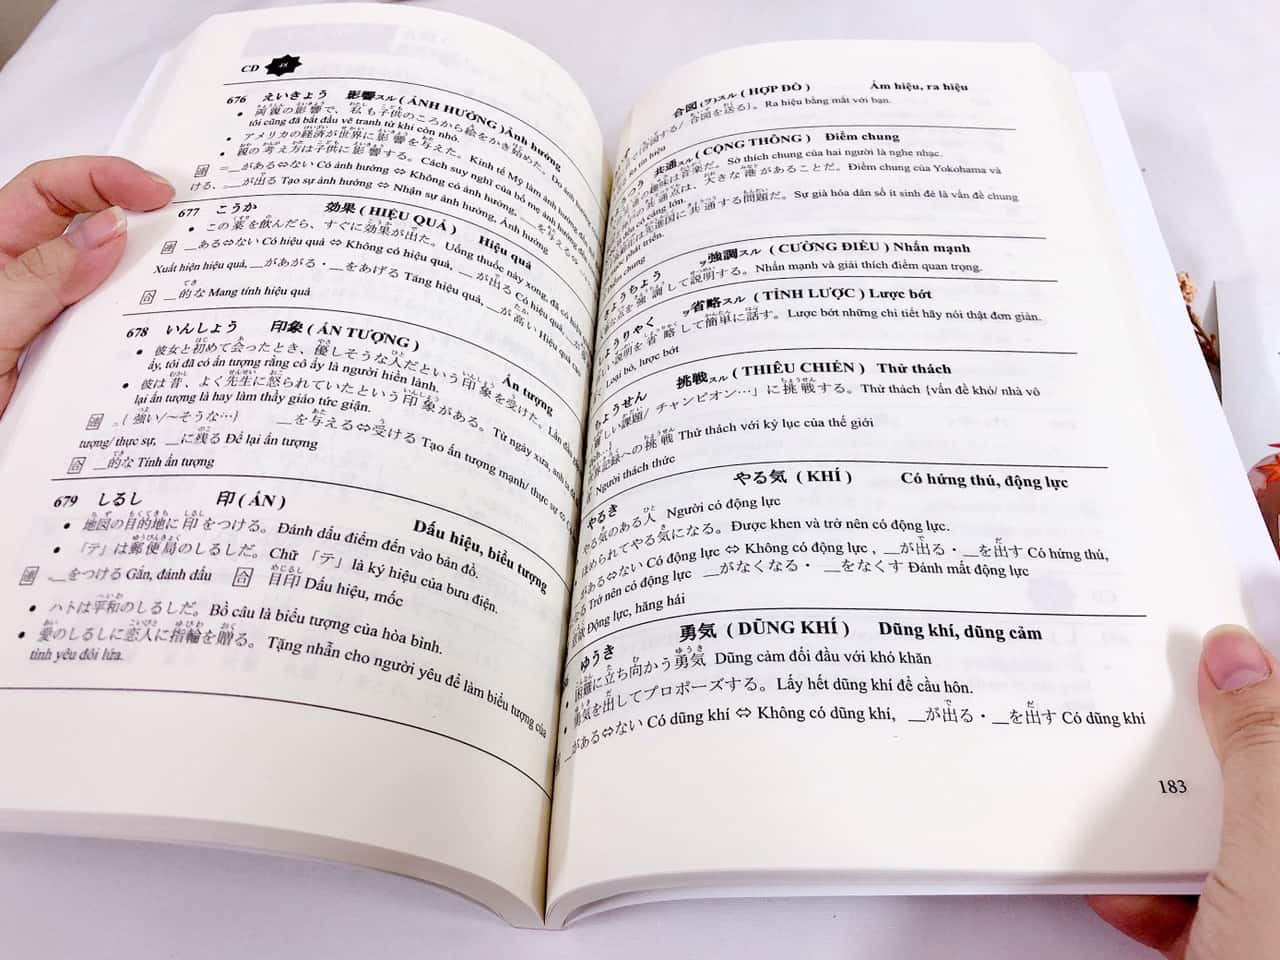 CD 48
676 えいきょう 影響スル ( ẢNH HƯỞNG ) Ảnh hưởng
• 両親の影響で、私も子供のころから絵をかき始めた。Do ảnh hưởng
tôi cũng đã bắt đầu vẽ tranh từ khi còn nhỏ.
• アメリカの経済が世界に影響を与えた。Kinh tế Mỹ làm ảnh hưởng
• 親の考え方は子供に影響する。Cách suy nghĩ của bố mẹ ảnh hưởng
連 =__がある⇔ない Có ảnh hưởng ⇔ Không có ảnh hưởng, __を与える⇔
ける、__が出る Tạo sự ảnh hưởng ⇔ Nhận sự ảnh hưởng, Ảnh hưởng
677 こうか 効果 ( HIỆU QUẢ ) Hiệu quả
• この薬を飲んだら、すぐに効果が出た。Uống thuốc này xong, đã có hiệu
連 __ある⇔ない Có hiệu quả ⇔ Không có hiệu quả, __が出る Có hiệu quả,
Xuất hiện hiệu quả, __があがる・__をあげる Tăng hiệu quả, __が高い Hiệu quả cao
合 __的な Mang tính hiệu quả
678 いんしょう 印象 ( ẤN TƯỢNG ) Ấn tượng
• 彼女と初めて会ったとき、優しそうな人だという印象を受けた。Lần đầu
ấy, tôi đã có ấn tượng rằng cô ấy là người hiền lành.
• 彼は昔、よく先生に怒られていたという印象がある。Từ ngày xưa, anh
lại ấn tượng là hay làm thầy giáo tức giận.
連 __{強い/~そうな…} __を与える⇔受ける Tạo ấn tượng mạnh/ thực sự ⇔
tượng/ thực sự, __に残る Để lại ấn tượng
合 __的な Tính ấn tượng
679 しるし 印 ( ẤN ) Dấu hiệu, biểu tượng
• 地図の目的地に印をつける。Đánh dấu điểm đến vào bản đồ.
• 「テ」は郵便局のしるしだ。Chữ 「テ」 là ký hiệu của bưu điện.
連 __をつける Gắn, đánh dấu 合 目印 Dấu hiệu, mốc
• ハトは平和のしるしだ。Bồ câu là biểu tượng của hòa bình.
• 愛のしるしに恋人に指輪を贈る。Tặng nhẫn cho người yêu để làm biểu tượng của
tình yêu đôi lứa.
合図(ヲ)スル ( HỢP ĐỒ ) Ám hiệu, ra hiệu
合図する/ 合図を送る}。Ra hiệu bằng mắt với bạn.
Ra tín hiệu
つう 共通スル ( CỘNG THÔNG ) Điểm chung
の趣味は音楽だ。Sở thích chung của hai người là nghe nhạc.
の共通点は、大きな港があることだ。Điểm chung của Yokohama và
có cảng lớn.
は先進国に共通する問題だ。Sự già hóa dân số ít sinh đẻ là vấn đề chung
phát triển.
Điểm chung
きょうちょう ヲ強調スル ( CƯỜNG ĐIỀU ) Nhấn mạnh
点を強調して説明する。Nhấn mạnh và giải thích điểm quan trọng.
しょうりゃく ヲ省略スル ( TỈNH LƯỢC ) Lược bớt
説明を省略して簡単に話す。Lược bớt những chi tiết hãy nói thật đơn giản.
Loại bỏ, lược bớt
ちょうせん 挑戦スル ( THIÊU CHIẾN ) Thử thách
しい課題/ チャンピオン…」に挑戦する。Thử thách {vấn đề khó/ nhà vô
記録への挑戦 Thử thách với kỷ lục của thế giới
Người thách thức
やるき やる気 ( KHÍ ) Có hứng thú, động lực
やる気のある人 Người có động lực
ほめられてやる気になる。Được khen và trở nên có động lực.
がある⇔ない Có động lực ⇔ Không có động lực , __が出る・__を出す Có hứng thú,
なる Trở nên có động lực __がなくなる・__をなくす Đánh mất động lực
Động lực, hăng hái
ゆうき 勇気 ( DŨNG KHÍ ) Dũng khí, dũng cảm
困難に立ち向かう勇気 Dũng cảm đối đầu với khó khăn
勇気を出してプロポーズする。Lấy hết dũng khí để cầu hôn.
__がある⇔ない Có dũng khí ⇔ Không có dũng khí, __が出る・__を出す Có dũng khí
183